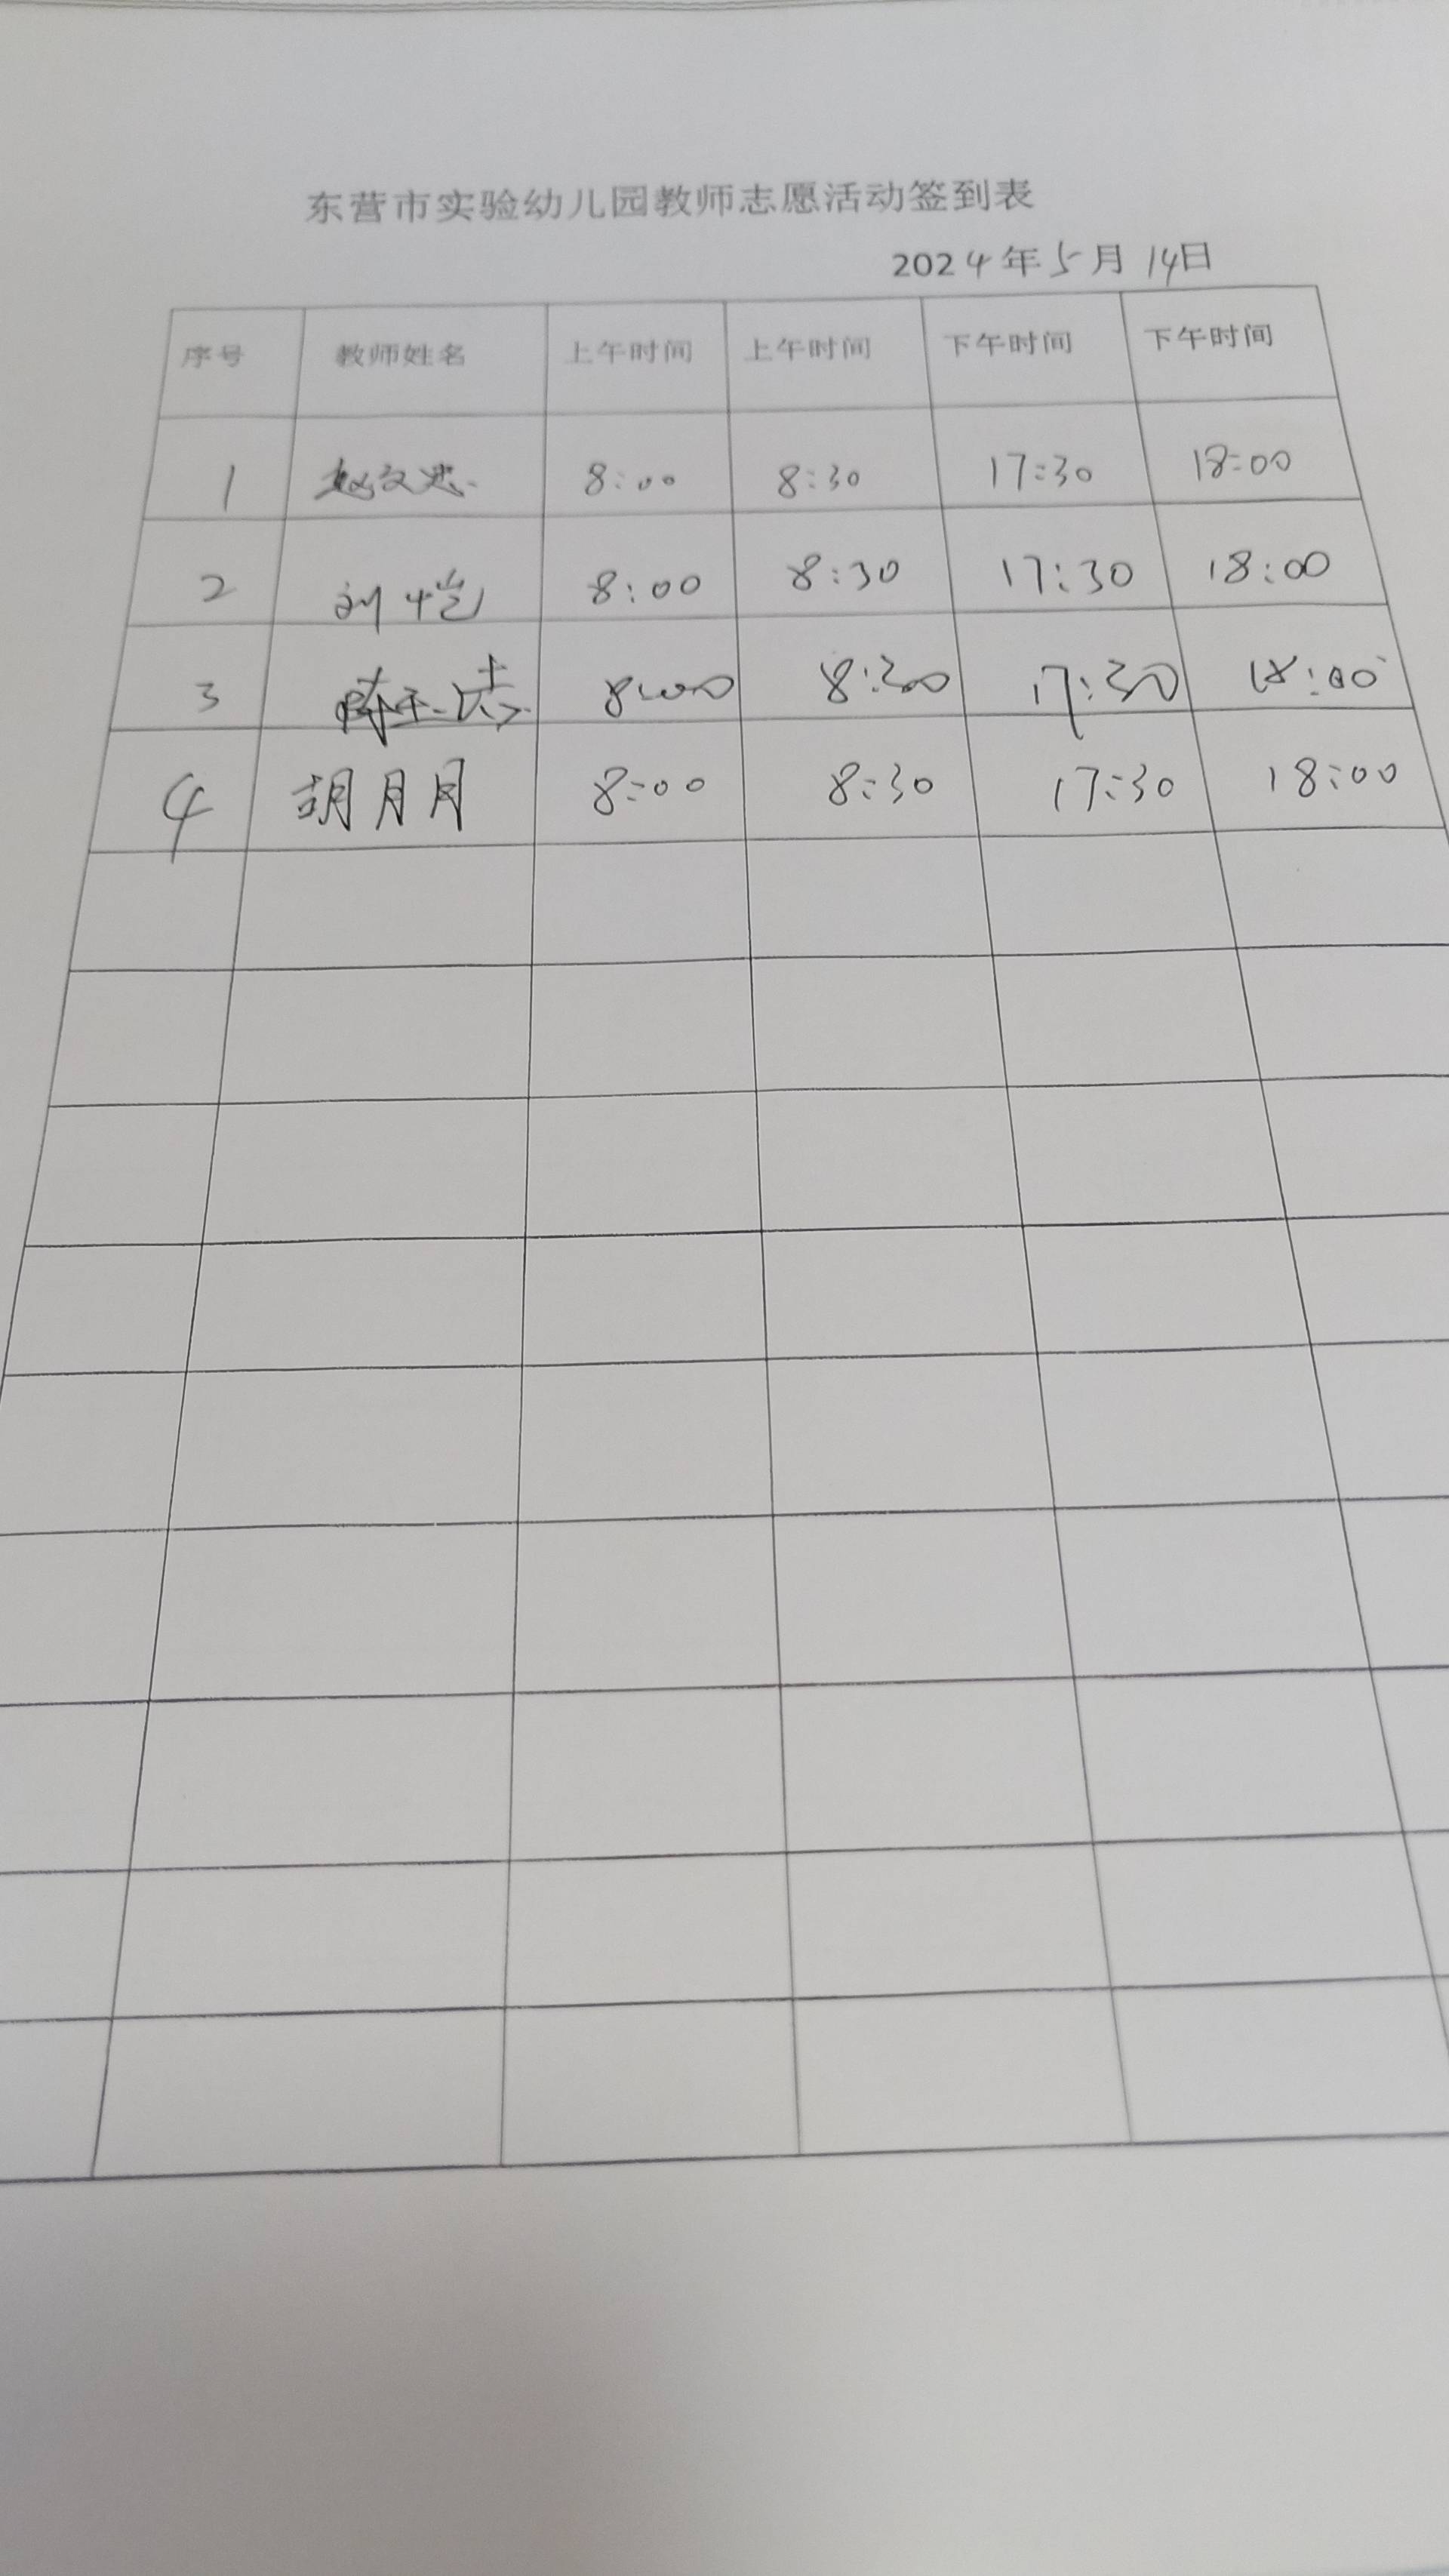 东营市实验幼儿园教师志愿活动签到表
2024年5月14日
序号 教师姓名 上午时间 上午时间 下午时间 下午时间
1 赵文忠 8:00 8:30 17:30 18:00
2 刘 8:00 8:30 17:30 18:00
3 8:00 8:30 17:30 18:00
4 胡月月 8:00 8:30 17:30 18:00